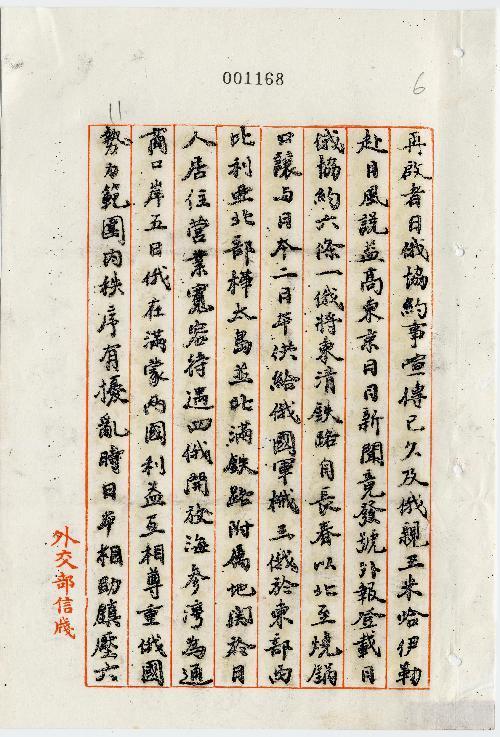 001168
6
11
再啟者日俄協約事喧傳已久及俄親王米哈伊勒
赴日風說益高東京日日新聞竟發號外報登載日
俄協約六條一俄將東清鐵路自長春以北至燒鍋
口讓与日本二日本供給俄國軍械三俄於東部西
比利亞北部樺太島並北滿鐵路附属地関於日
人居住營業寬容待遇四俄開放海參灣為通
商口岸五日俄在滿蒙两國利益互相尊重俄國
勢力範圍內秩序有擾亂時日本相助鎮壓六
外交部信牋